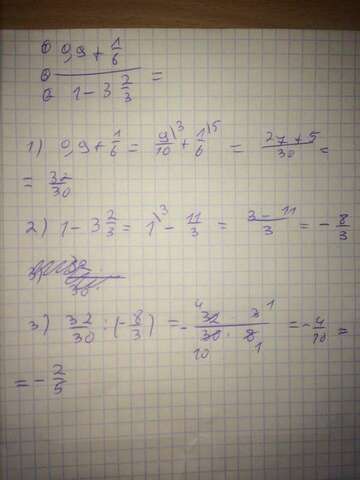 ① 0,9 + 1/6
③ ——— =
② 1 - 3 2/3
1) 0,9 + 1/6 = 9\3/10 + 1\5/6 = 27 + 5/30 =
= 32/30
2) 1 - 3 2/3 = 1\3 - 11/3 = 3 - 11/3 = - 8/3
3) 32/30 : (- 8/3) = - 32 4 · 3 1/30 10 · 8 1 = - 4/10 =
= - 2/5